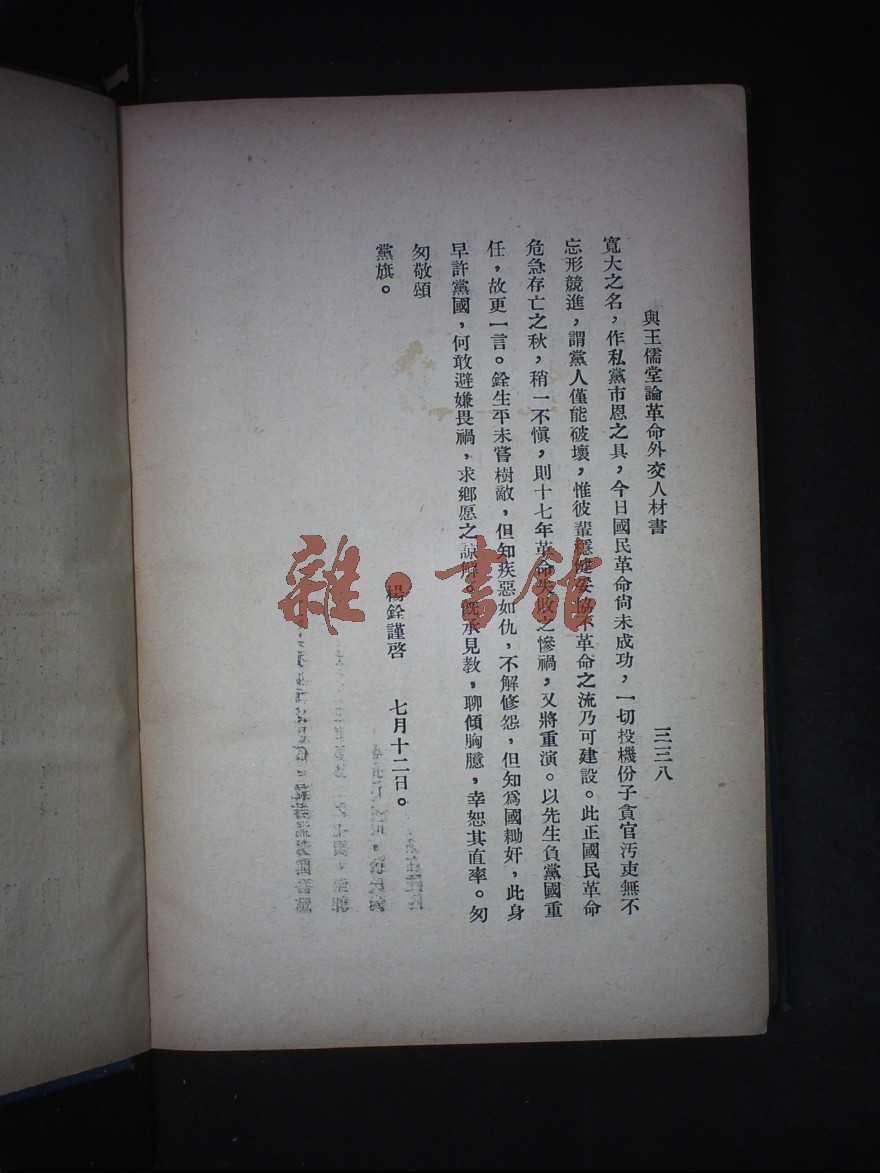 與王儒堂論革命外交人材書　三三八
寬大之名，作私黨市恩之具，今日國民革命尙未成功，一切投機份子貪官汚吏無不
忘形競進，謂黨人僅能破壞，惟彼輩穩健妥協不革命之流乃可建設。此正國民革命
危急存亡之秋，稍一不愼，則十七年革命失敗之慘禍，又將重演。以先生負黨國重
任，故更一言。銓生平未嘗樹敵，但知疾惡如仇，不解修怨，但知爲國鋤奸，此身
早許黨國，何敢避嫌畏禍，求鄕愿之諒解。旣承見教，聊傾胸臆，幸恕其直率。匆
匆敬頌
黨旗。
楊銓謹啓　七月十二日。
雜·書館